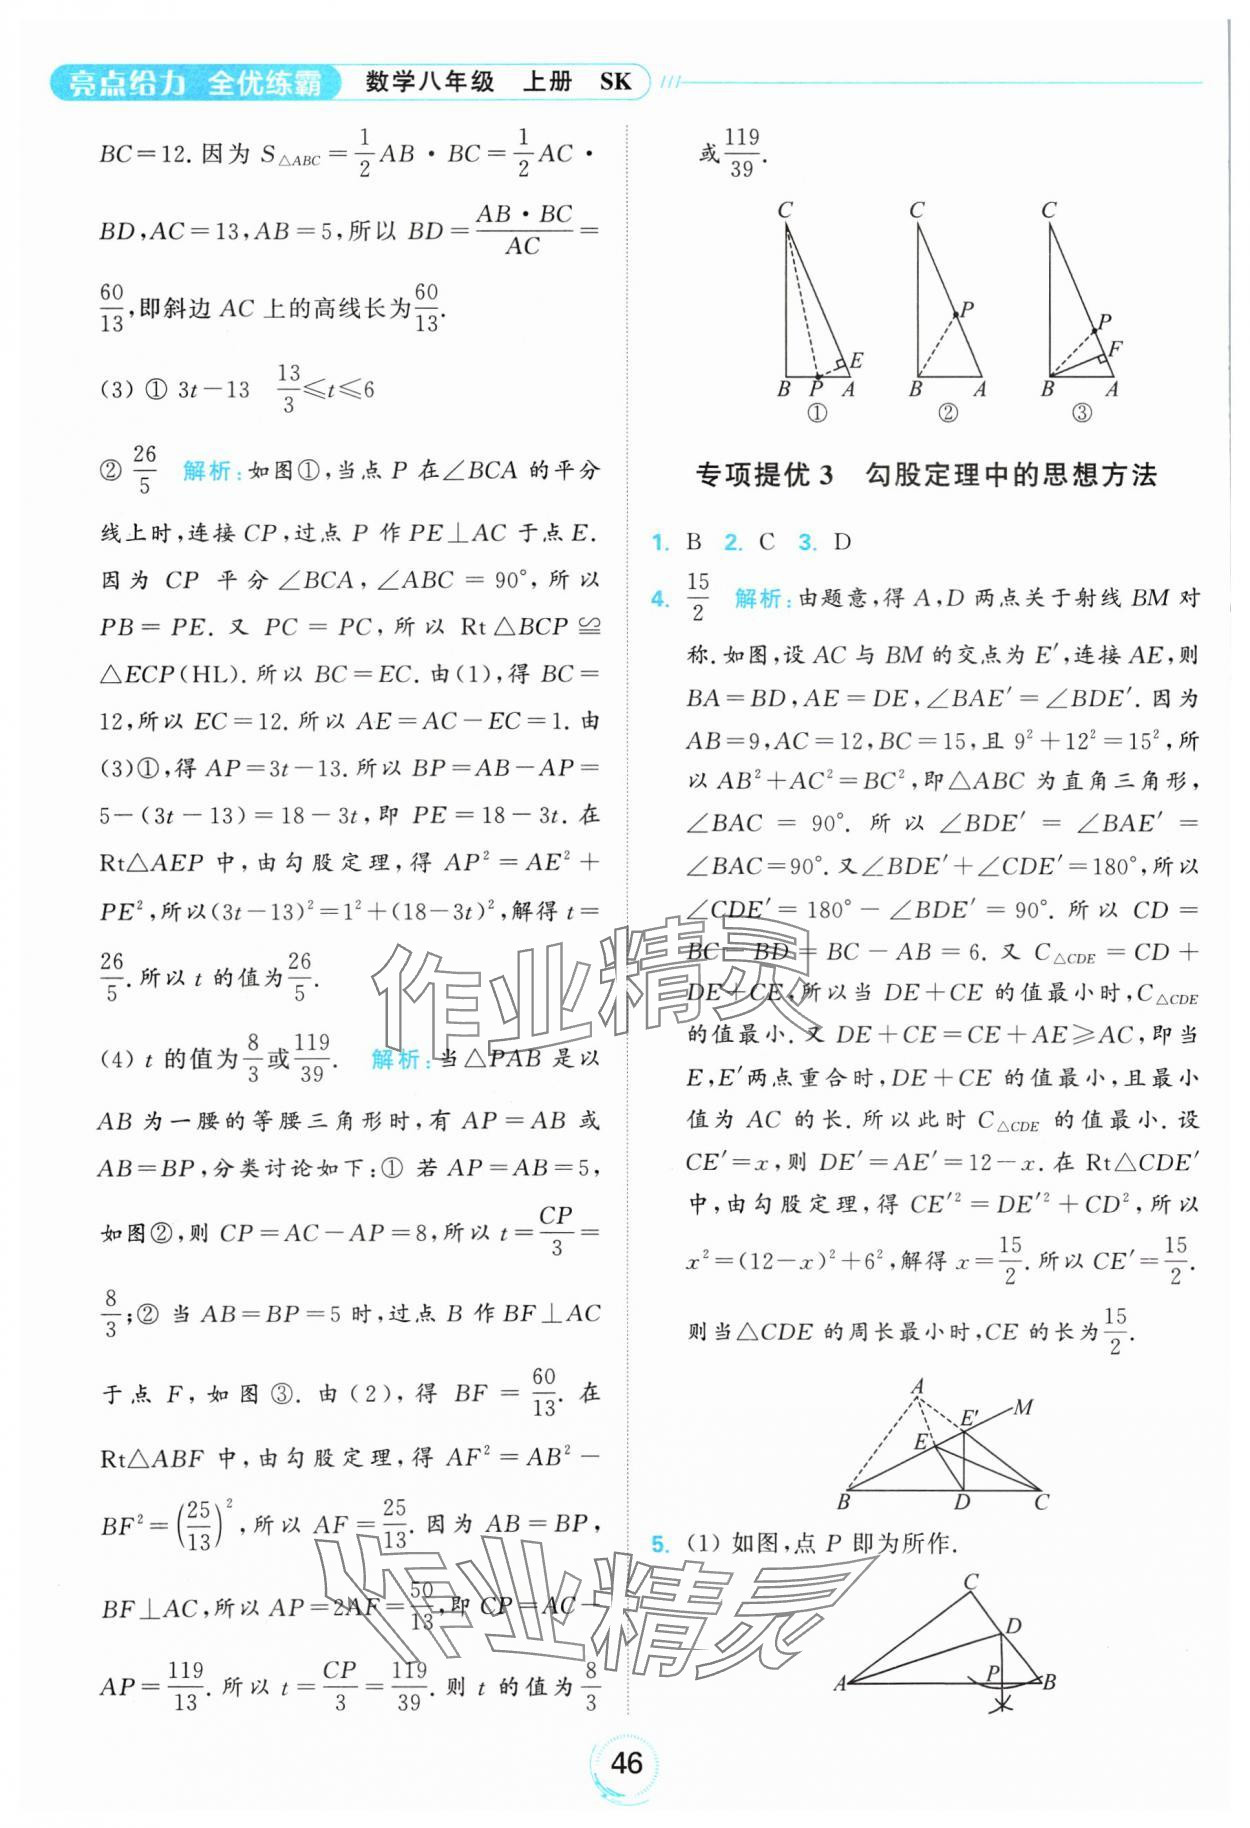 亮点给力 全优练霸 数学八年级 上册 SK
BC=12.因为 S△ABC=1/2AB·BC=1/2AC·
BD,AC=13,AB=5,所以 BD=AB·BC/AC=
60/13,即斜边 AC 上的高线长为60/13.
(3) ① 3t-13 13/3≤t≤6
② 26/5 解析:如图①,当点 P 在∠BCA 的平分
线上时,连接 CP,过点 P 作 PE⊥AC 于点 E.
因为 CP 平分∠BCA,∠ABC=90°,所以
PB=PE.又 PC=PC,所以 Rt△BCP≌
△ECP(HL).所以 BC=EC.由(1),得 BC=
12,所以 EC=12.所以 AE=AC-EC=1.由
(3)①,得 AP=3t-13.所以 BP=AB-AP=
5-(3t-13)=18-3t,即 PE=18-3t.在
Rt△AEP 中,由勾股定理,得 AP²=AE²+
PE²,所以(3t-13)²=1²+(18-3t)²,解得 t=
26/5.所以 t 的值为26/5.
(4) t 的值为8/3或119/39. 解析:当△PAB 是以
AB 为一腰的等腰三角形时,有 AP=AB 或
AB=BP,分类讨论如下:① 若 AP=AB=5,
如图②,则 CP=AC-AP=8,所以 t=CP/3=
8/3;② 当 AB=BP=5 时,过点 B 作 BF⊥AC
于点 F,如图③.由(2),得 BF=60/13.在
Rt△ABF 中,由勾股定理,得 AF²=AB²-
BF²=(25/13)²,所以 AF=25/13.因为 AB=BP,
BF⊥AC,所以 AP=2AF=50/13,即 CP=AC-
AP=119/13.所以 t=CP/3=119/39.则 t 的值为8/3
或119/39.
C C C
P P
E F
B P A B A B A
① ② ③
专项提优 3 勾股定理中的思想方法
1. B 2. C 3. D
4. 15/2 解析:由题意,得 A,D 两点关于射线 BM 对
称.如图,设 AC 与 BM 的交点为 E′,连接 AE,则
BA=BD,AE=DE,∠BAE′=∠BDE′.因为
AB=9,AC=12,BC=15,且 9²+12²=15²,所
以 AB²+AC²=BC²,即△ABC 为直角三角形,
∠BAC=90°.所以∠BDE′=∠BAE′=
∠BAC=90°.又∠BDE′+∠CDE′=180°,所以
∠CDE′=180°-∠BDE′=90°.所以 CD=
BC-BD=BC-AB=6.又 C△CDE=CD+
DE+CE,所以当 DE+CE 的值最小时,C△CDE
的值最小.又 DE+CE=CE+AE≥AC,即当
E,E′两点重合时,DE+CE 的值最小,且最小
值为 AC 的长.所以此时 C△CDE 的值最小.设
CE′=x,则 DE′=AE′=12-x.在 Rt△CDE′
中,由勾股定理,得 CE′²=DE′²+CD²,所以
x²=(12-x)²+6²,解得 x=15/2.所以 CE′=15/2.
则当△CDE 的周长最小时,CE 的长为15/2.
A
E′ M
E
B D C
5. (1) 如图,点 P 即为所作.
C
D
P
A B
作业精灵
作业精灵
46